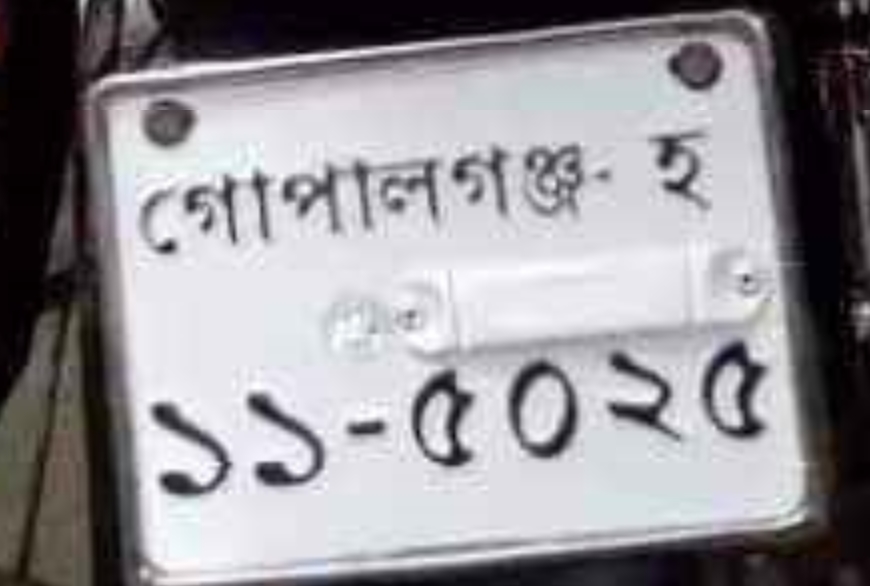 গোপালগঞ্জ- হ
১১-৫০২৫